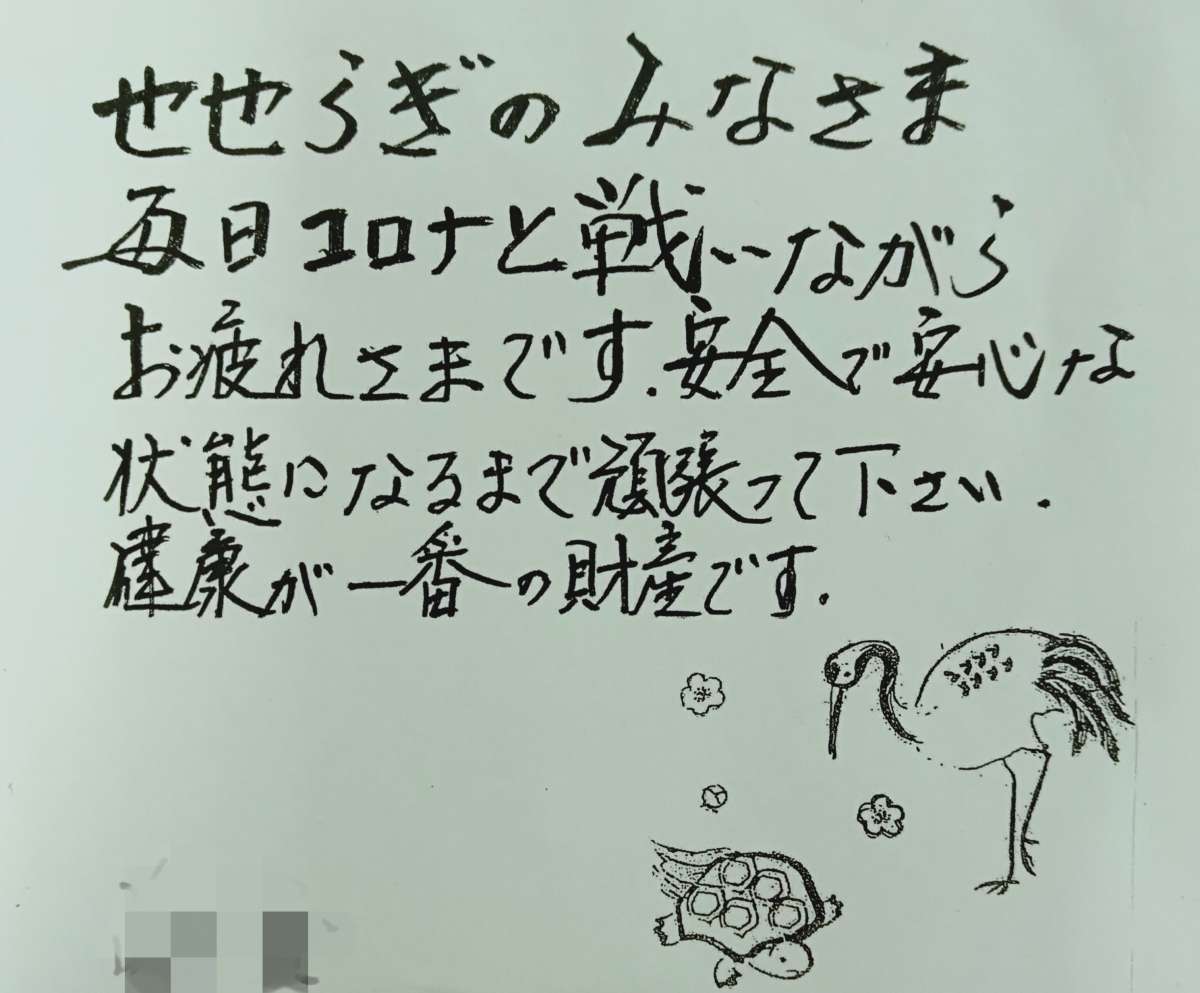 せせらぎのみなさま
毎日コロナと戦いながら
お疲れさまです.安全で安心な
状態になるまで頑張って下さい.
健康が一番の財産です.